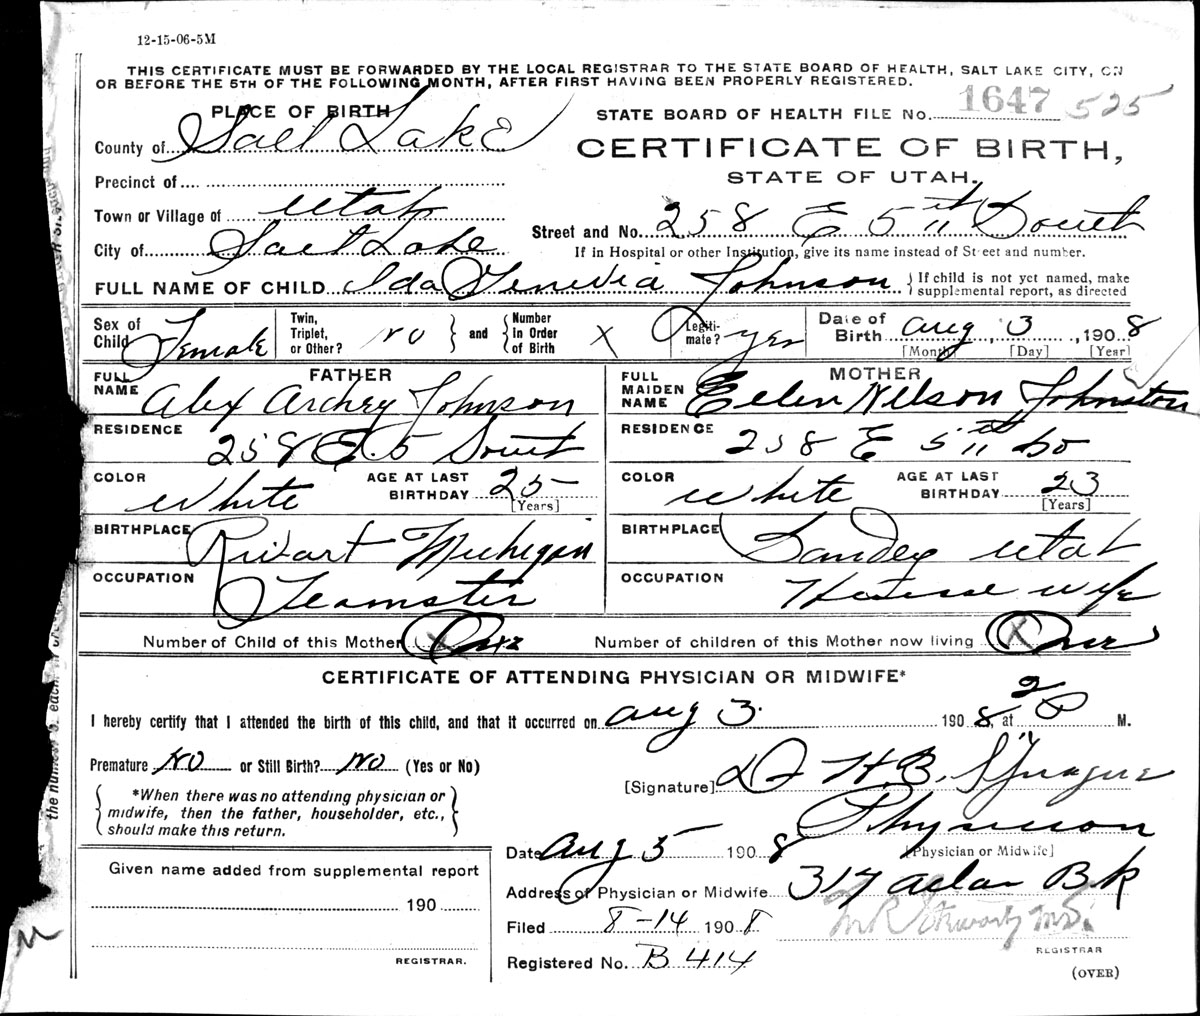 12-15-06-5M
THIS CERTIFICATE MUST BE FORWARDED BY THE LOCAL REGISTRAR TO THE STATE BOARD OF HEALTH, SALT LAKE CITY, ON
OR BEFORE THE 5TH OF THE FOLLOWING MONTH, AFTER FIRST HAVING BEEN PROPERLY REGISTERED.
PLACE OF BIRTH
STATE BOARD OF HEALTH FILE No. 1647 525
County of Salt Lake
CERTIFICATE OF BIRTH,
STATE OF UTAH.
Precinct of
Town or Village of Utah
Street and No. 258 E 5th South
City of Salt Lake
If in Hospital or other Institution, give its name instead of Street and number.
FULL NAME OF CHILD Ida Genevia Johnson } If child is not yet named, make supplemental report, as directed
Sex of Child Female Twin, Triplet, or Other? no } and { Number in Order of Birth X Legiti-mate? yes Date of Birth Aug 3, 1908
[Month] [Day] [Year]
FATHER
MOTHER
FULL NAME Alex Archey Johnson
FULL MAIDEN NAME Eelen Nelson Johnston
RESIDENCE 258 E. 5 South
RESIDENCE 258 E 5th So
COLOR White AGE AT LAST BIRTHDAY 25 [Years]
COLOR White AGE AT LAST BIRTHDAY 23 [Years]
BIRTHPLACE Michigan
BIRTHPLACE Sandey Utah
OCCUPATION Teamster
OCCUPATION House wife
Number of Child of this Mother One
Number of children of this Mother now living X One
CERTIFICATE OF ATTENDING PHYSICIAN OR MIDWIFE*
I hereby certify that I attended the birth of this child, and that it occurred on Aug 3. 1908, at 2 P M.
Premature No or Still Birth? No (Yes or No)
[Signature] Dr H.B. Sprague
{ *When there was no attending physician or
midwife, then the father, householder, etc.,
should make this return. }
Physician
[Physician or Midwife]
Date Aug 5 1908
Given name added from supplemental report
Address of Physician or Midwife 317 Bk
190
Filed 8-14 1908
REGISTRAR
Registered No. B 414
REGISTRAR.
(OVER)